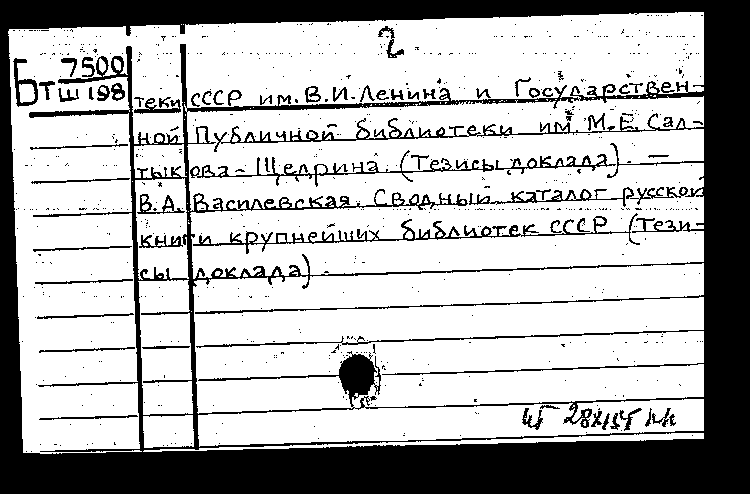 2
Бт 7500
Ш 198
теки СССР им. В.И. Ленина и Государствен-
ной Публичной библиотеки им. М.Е. Сал-
тыкова-Щедрина. (Тезисы доклада). —
В.А. Василевская. Сводный каталог русской
книги крупнейших библиотек СССР (Тези-
сы доклада).